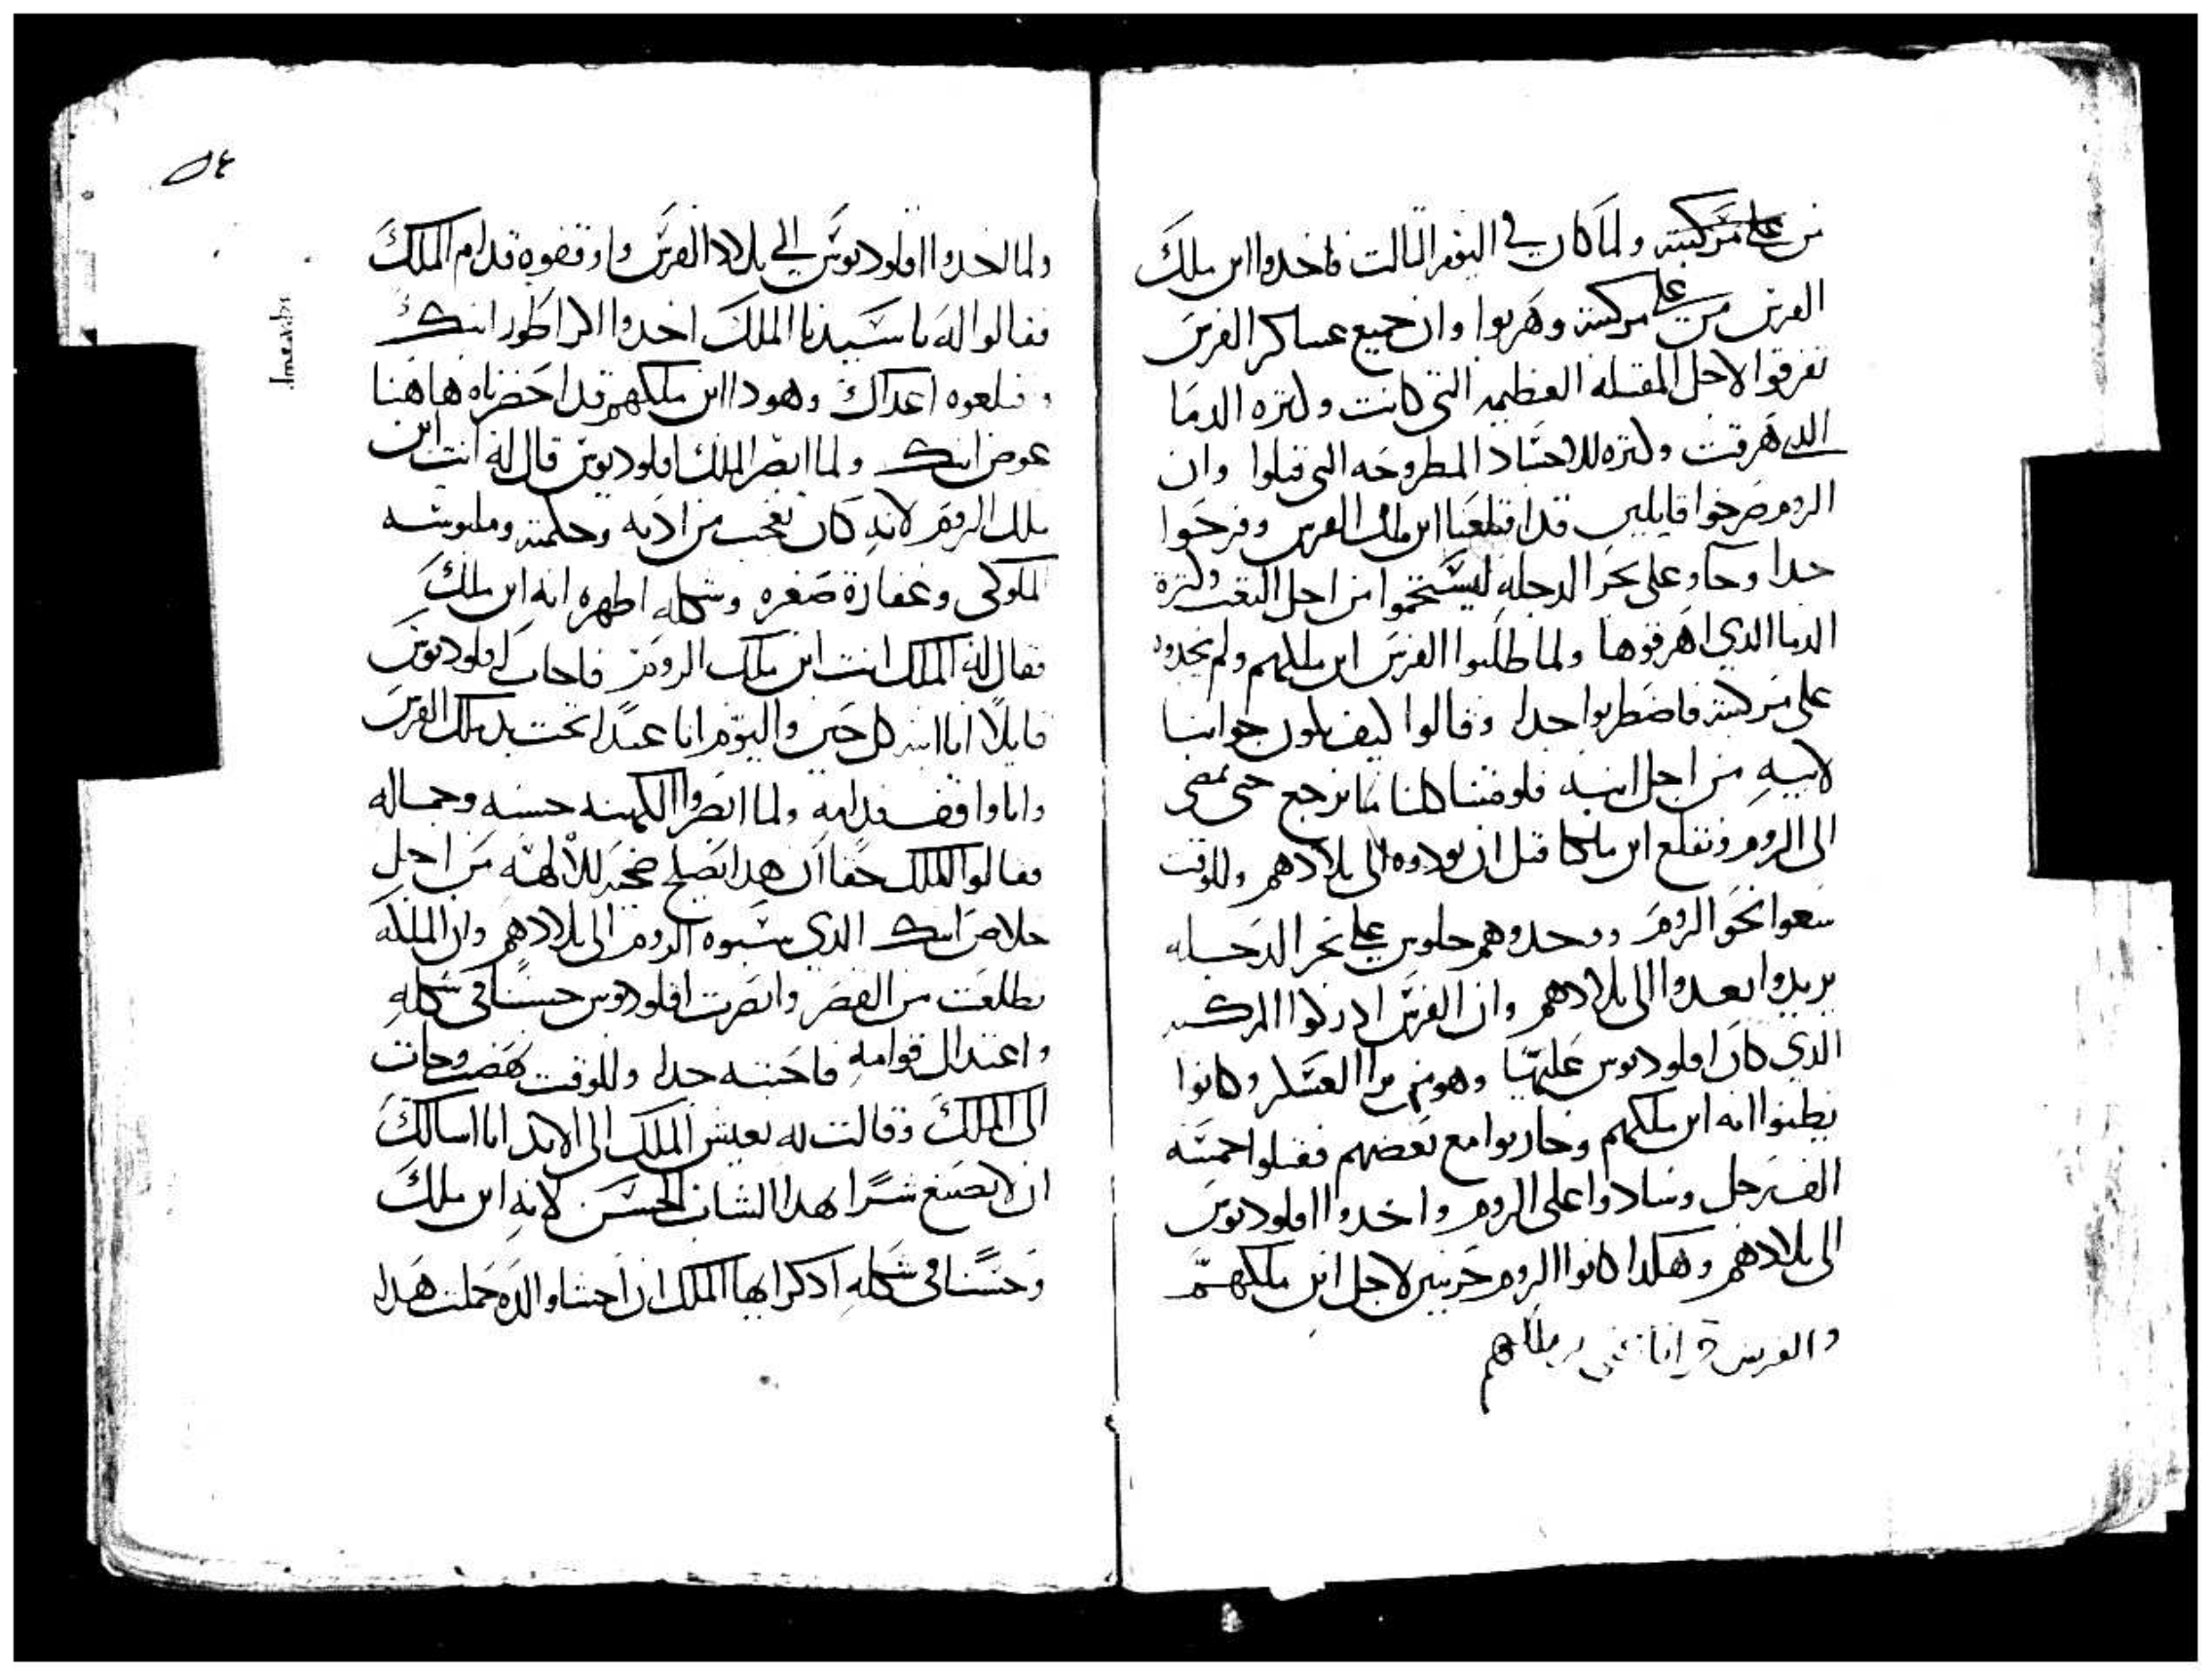 من على مركبته ولما كان في اليوم التالت فاخدوا ابن ملك
الفرس من على مركبته وهربوا وان جميع عساكر الفرس
تفرقوا لاجل المقتله العظيمه التي كانت وكتره الدما
الدي هرقت وكتره الاجساد المطروحه التي قتلوا وان
الروم صرخوا قايلين قد اقلعنا ابن ملك الفرس وفرحوا
جدا وجاو على بحر الدجله ليستحموا من اجل التعب وكترة
الدما الدي اهرقوها ولما طلبوا الفرس ابن ملكهم ولم يجدوه
على مركبته فاضطربوا جدا وقالوا كيف يكون جوابنا
لابيه من اجل ابنه فلو متنا كلنا ما نرجع حتى نمضي
الى الروم ونقلع ابن ملكنا قبل ان يودوه الى بلادهم وللوقت
سعوا نحو الروم ووجدوهم جلوس على بحر الدجله
يريدوا يعدوا الى بلادهم وان الفرس ادركوا المركبه
الدي كان اقلوديوس عليها وهو من العسكر وكانوا
يظنوا انه ابن ملكهم وحاربوا مع بعضهم فقتلوا خمسه
الف رجل وسادوا على الروم واخدوا اقلوديوس
الى بلادهم وهكدا كانوا الروم حزينين لاجل ابن ملكهم
والفرس ملكهم
٥٤
ولما اخدوا اقلوديوس الي بلاد الفرس واوقفوه قدام الملك
فقالوا له يا سيدنا الملك اخدوا ابنك
وقلعوه اعداك وهودا ابن ملكهم قد احضرناه هاهنا
عوض ابنك ولما ابصر الملك اقلوديوس قال له انت ابن
ملك الروم لانه كان تعجب من ادبه وحكمته وملبوسه
الملوكى وغفارة صغره وشكله اظهره انه ابن ملك
فقال له الملك انت ابن ملك الروم فاجاب اقلوديوس
قايلا انا ابنه كل حين واليوم انا عبدا تحت يد ملك الفرس
وانا واقف قدامه ولما ابصروا الكهنه حسنه وجماله
فقالوا للملك حقا ان هدا يصلح ضحيه للالهه من اجل
خلاص ابنك الدي سبوه الروم الى بلادهم وان الملكه
تطلعت من القصر وابصرت اقلوديوس حسنا في شكله
واعتدال قوامه فاحبته جدا وللوقت نهضت وجات
الى الملك وقالت له يعيش الملك الى الابد انا اسالك
ان لا تصنع شرا بهدا الشاب الحسن لانه ابن ملك
وحسنا في شكله ادكر ايها الملك ان احشا والده حملت هدا